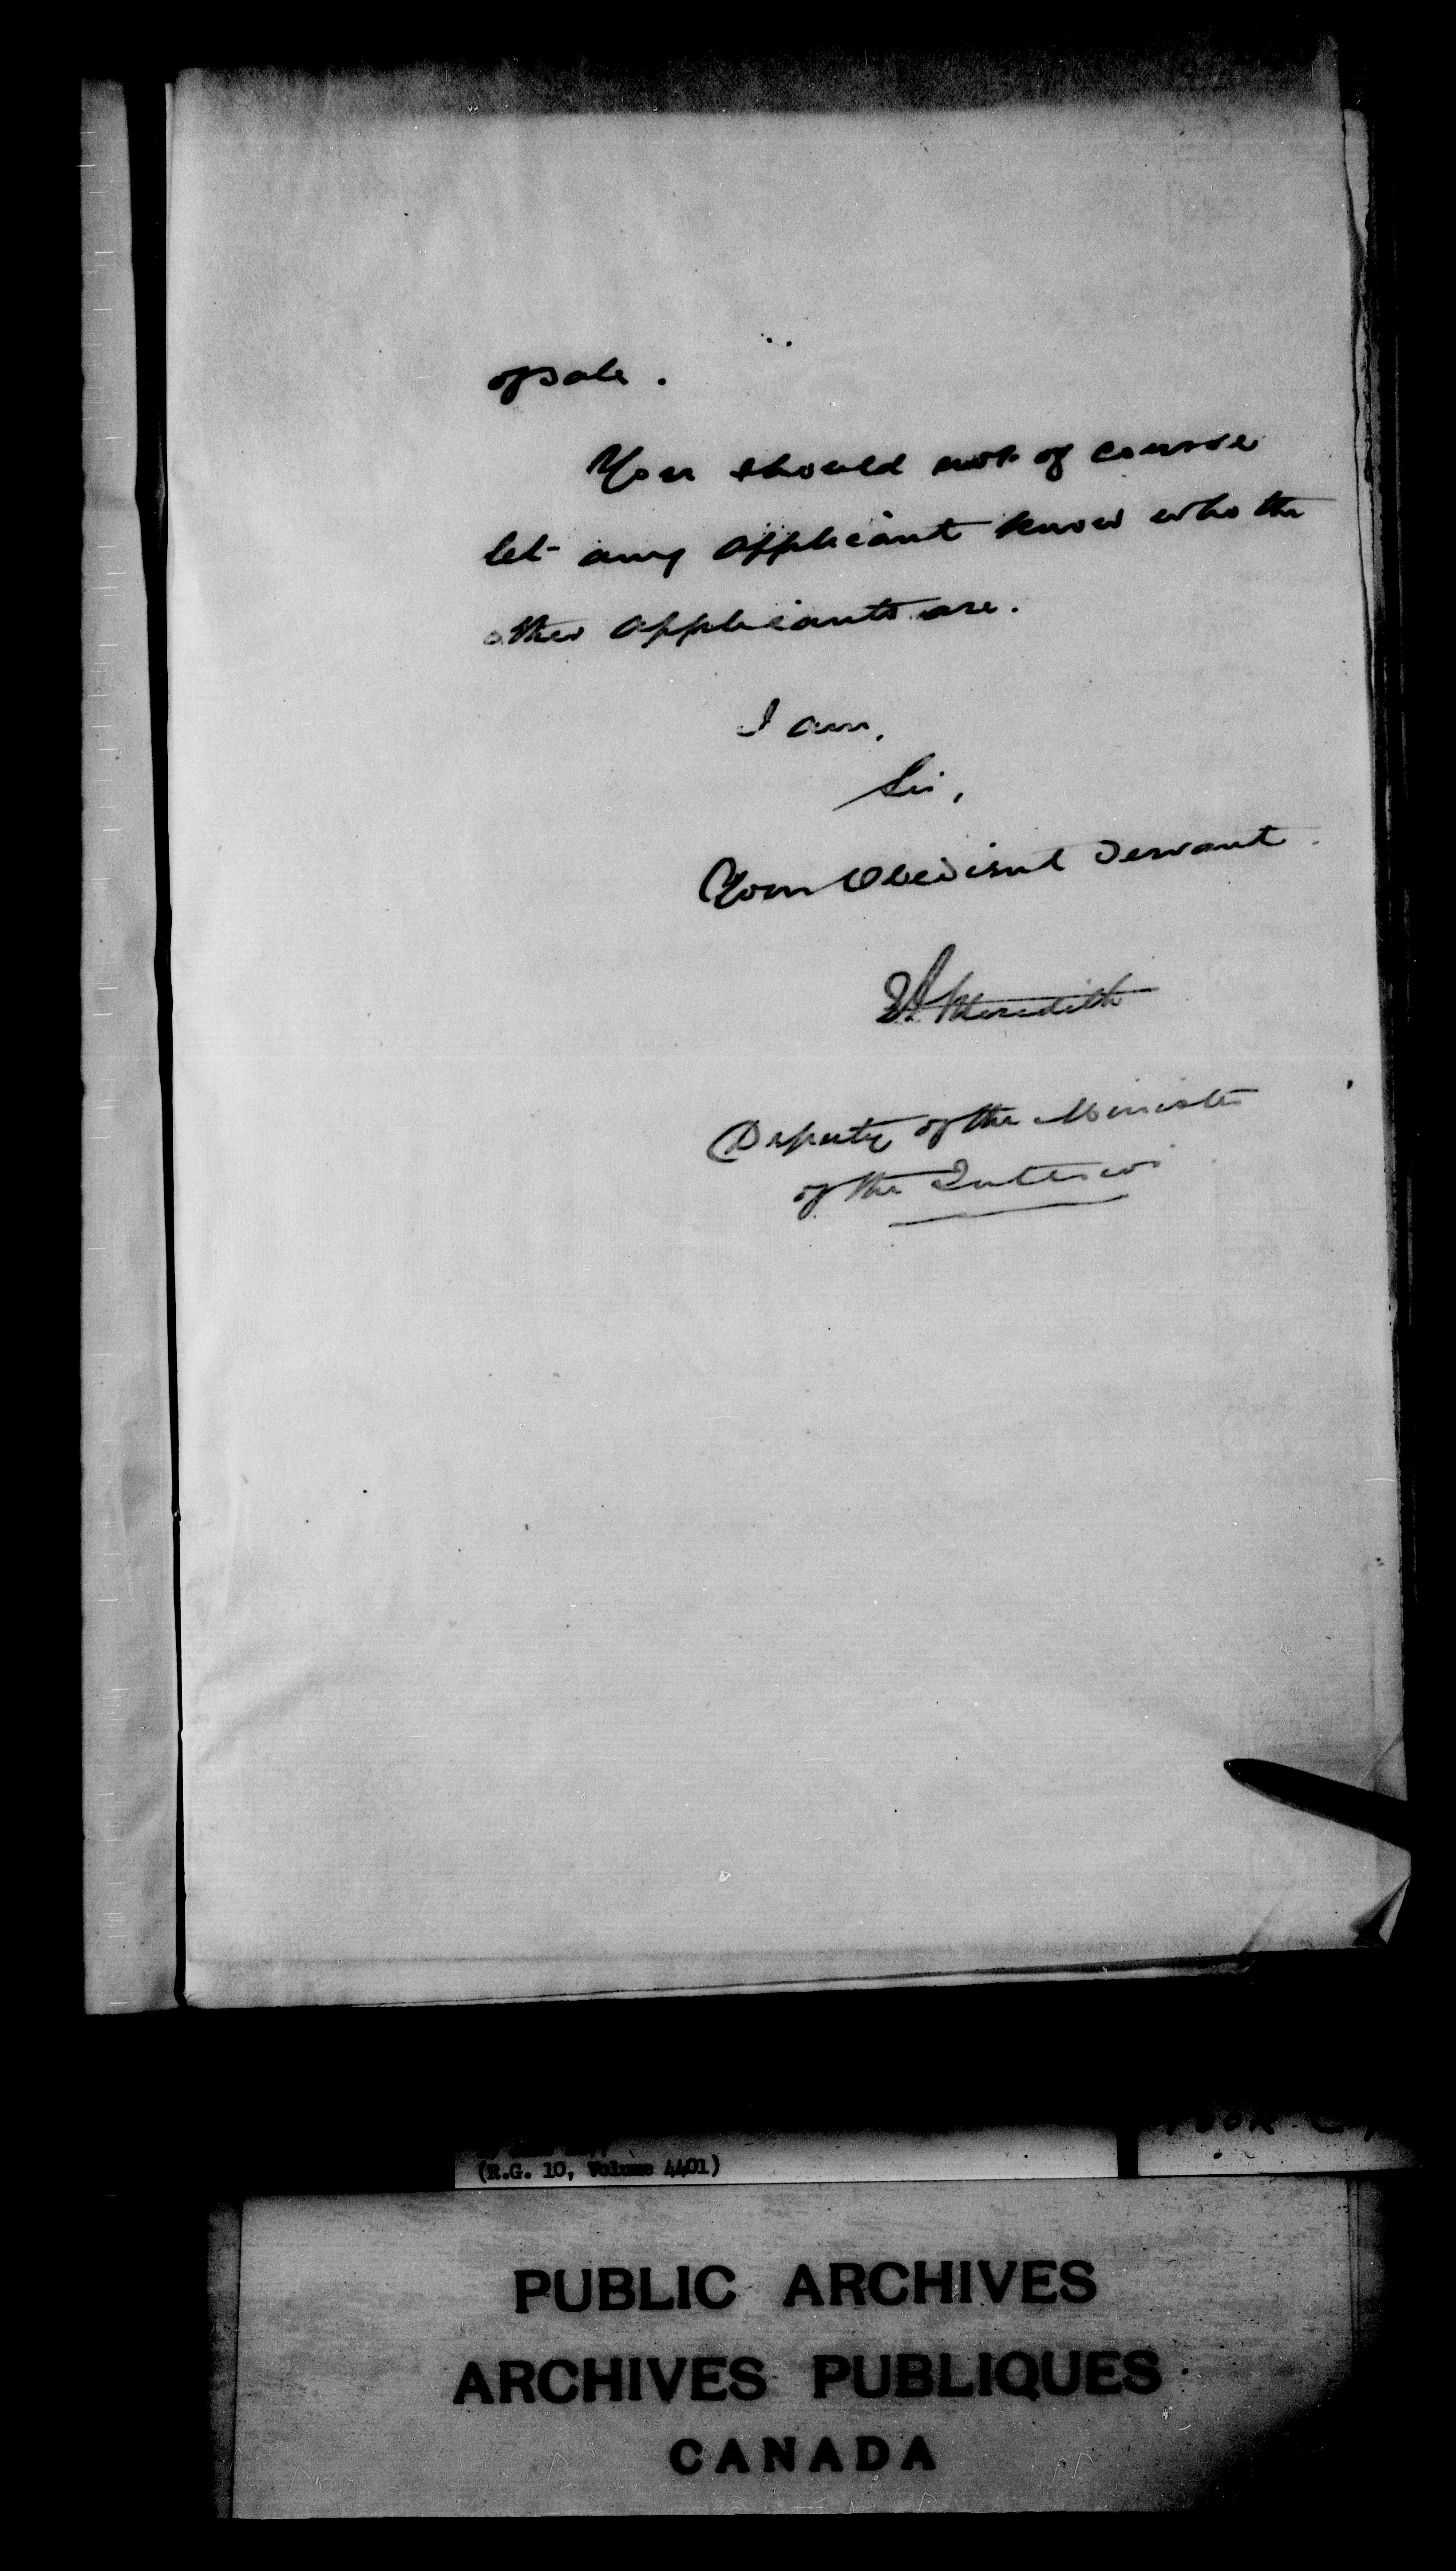 of sale.
You should not of course
let any applicant know who the
other applicants are.
I am,
Sir,
Your Obedient Servant
Meredith
Deputy of the Minister
of the Interior
(R.G. 10, Volume 4401)
PUBLIC ARCHIVES
ARCHIVES PUBLIQUES
CANADA